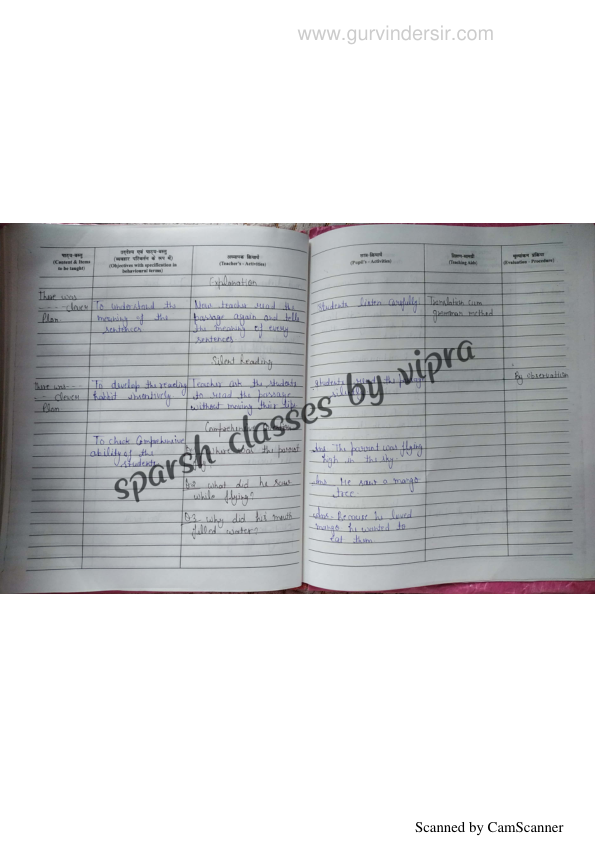 www.gurvindersir.com
पाठ्य-वस्तु
(Content & Items
to be taught)
उद्देश्य एवं पाठ्य-वस्तु
(व्यवहार परिवर्तन के रूप में)
(Objectives with specification in
behavioural terms)
अध्यापक क्रियायें
(Teacher's - Activities)
छात्र-क्रियायें
(Pupil's - Activities)
शिक्षण-सामग्री
(Teaching Aids)
मूल्यांकन प्रक्रिया
(Evaluation - Procedure)
Explanation
There was
----- clever
Plan.
To understand the
meaning of the
sentences
Now teacher read the
passage again and tells
the meaning of every
sentences
Students listen carefully.
Translation cum
method
Silent Reading
There was ---
--- clever
Plan
To develop the reading
habbit
Teacher ask the students
to read the passage
without moving their lips
Students read the
By observation
Comprehensive
To check Comprehensive
ability of the
students
the parrot
Ans The parrot was flying
high in the sky.
Q.2 what did he saw
while flying?
Ans He saw a mango
tree
Q.3 why did his mouth
filled water?
Ans- Because he loved
mango he wanted to
eat them
sparsh classes by vipra
Scanned by CamScanner